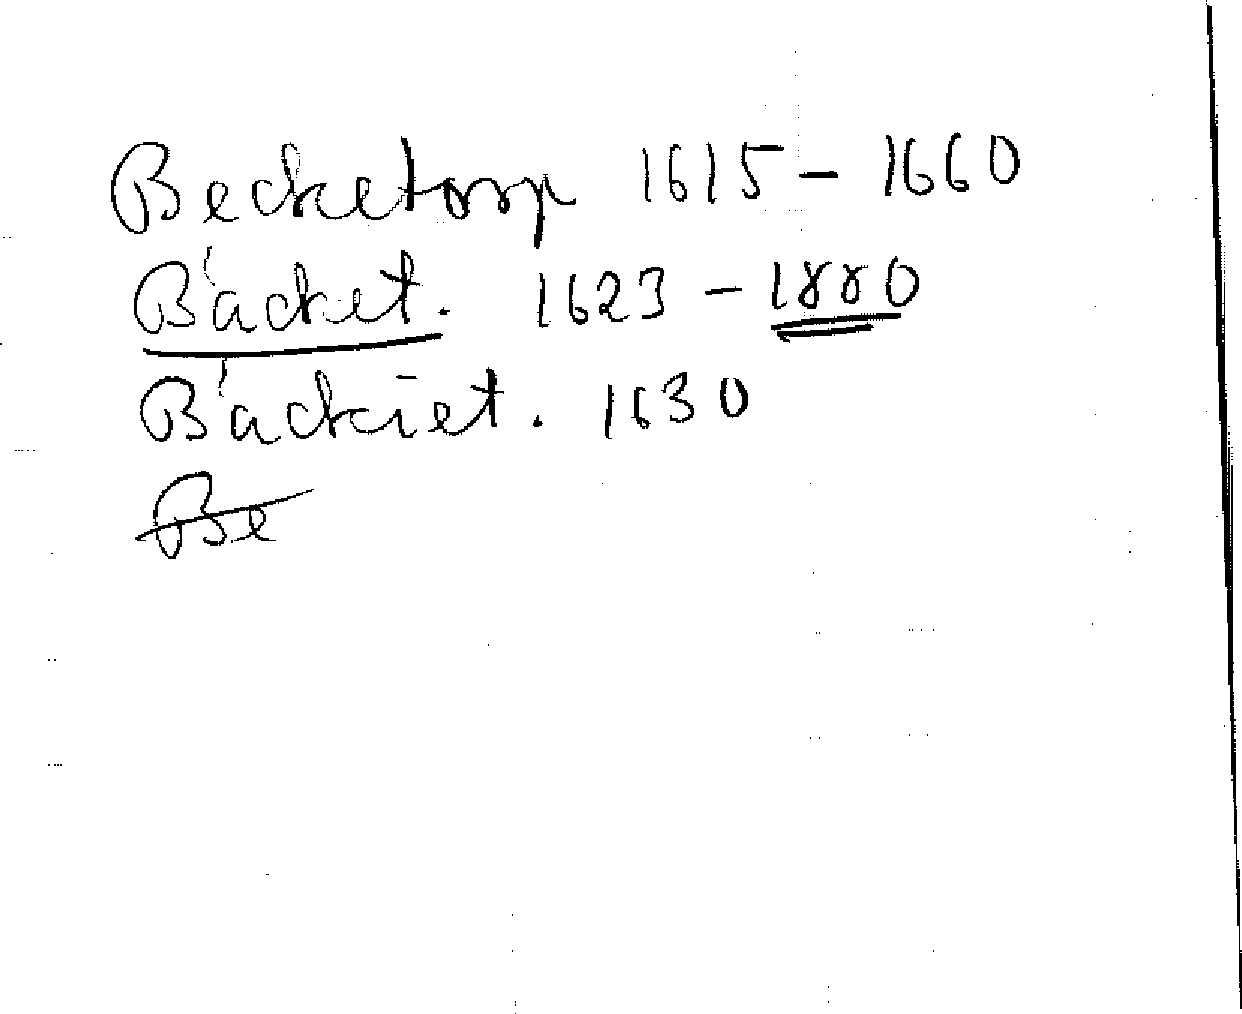 Becketorp 1615 – 1660
Bäcket. 1623 – 1880
Bäckiet. 1630
Be